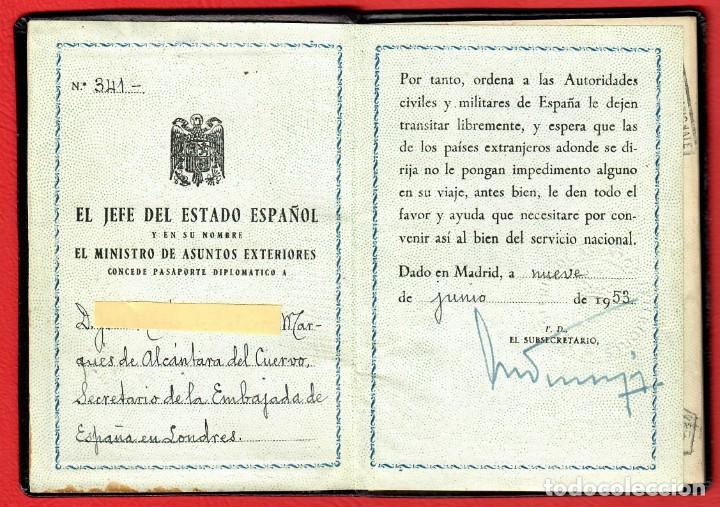 N.º 341-
EL JEFE DEL ESTADO ESPAÑOL
Y EN SU NOMBRE
EL MINISTRO DE ASUNTOS EXTERIORES
CONCEDE PASAPORTE DIPLOMATICO A
D. Mar-
qués de Alcántara del Cuervo,
Secretario de la Embajada de
España en Londres.
Por tanto, ordena a las Autoridades
civiles y militares de España le dejen
transitar libremente, y espera que las
de los países extranjeros adonde se di-
rija no le pongan impedimento alguno
en su viaje, antes bien, le den todo el
favor y ayuda que necesitare por con-
venir así al bien del servicio nacional.
Dado en Madrid, a nueve
de junio de 1953.
P. D.,
EL SUBSECRETARIO,
todocoleccion.net